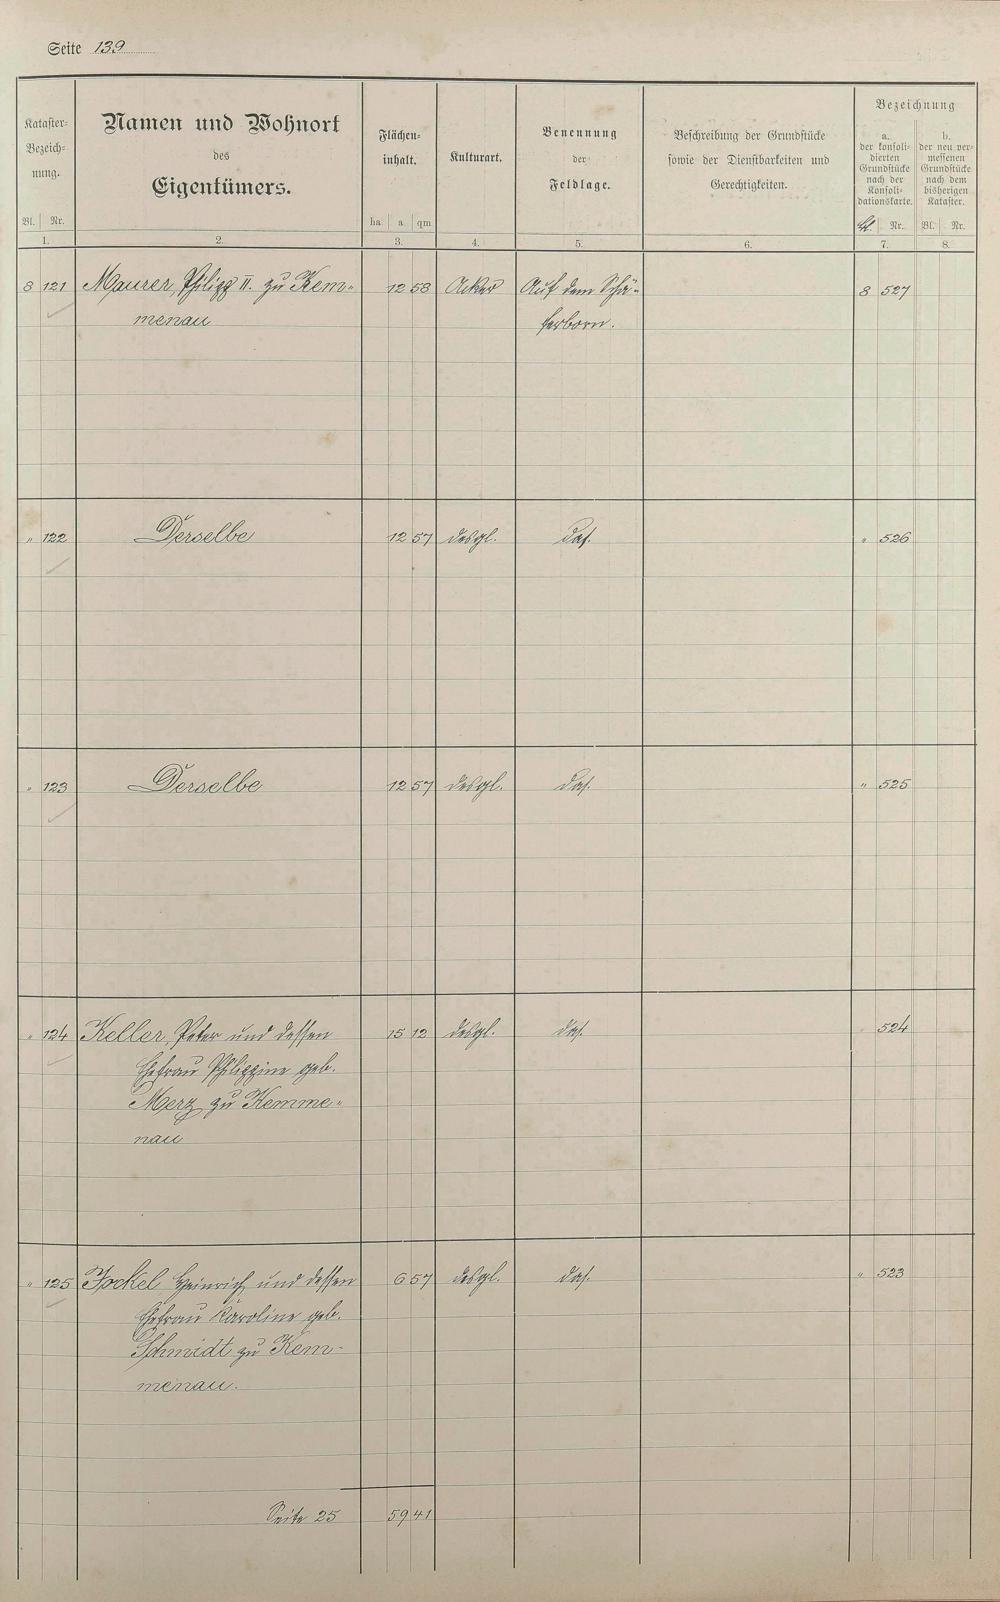 Seite 139
Kataster-
Bezeich-
nung.
Bl. Nr.
1.
Namen und Wohnort
des
Eigentümers.
2.
Flächen-
inhalt.
ha a qm
3.
Kulturart.
4.
Benennung
der
Feldlage.
5.
Beschreibung der Grundstücke
sowie der Dienstbarkeiten und
Gerechtigkeiten.
6.
Bezeichnung
a.
der konsoli-
dierten
Grundstücke
nach der
Konsoli-
dationskarte.
Bl. Nr.
7.
b.
der neu ver-
messenen
Grundstücke
nach dem
bisherigen
Kataster.
Bl. Nr.
8.
8 121 Maurer, Philipp II. zu Kem- 12 58 Acker Auf dem Schä- 8 527
menau ferborn.
" 122 Derselbe 12 57 desgl. das. " 526
" 123 Derselbe 12 57 desgl. das. " 525
" 124 Keller, Peter und dessen 15 12 desgl. das. 524
Ehefrau Philippine geb.
Merz zu Kemme-
nau
" 125 Jockel Heinrich und dessen 6 57 desgl. das. " 523
Ehefrau Karoline geb.
Schmidt zu Kem-
menau.
Seite 25 59 41